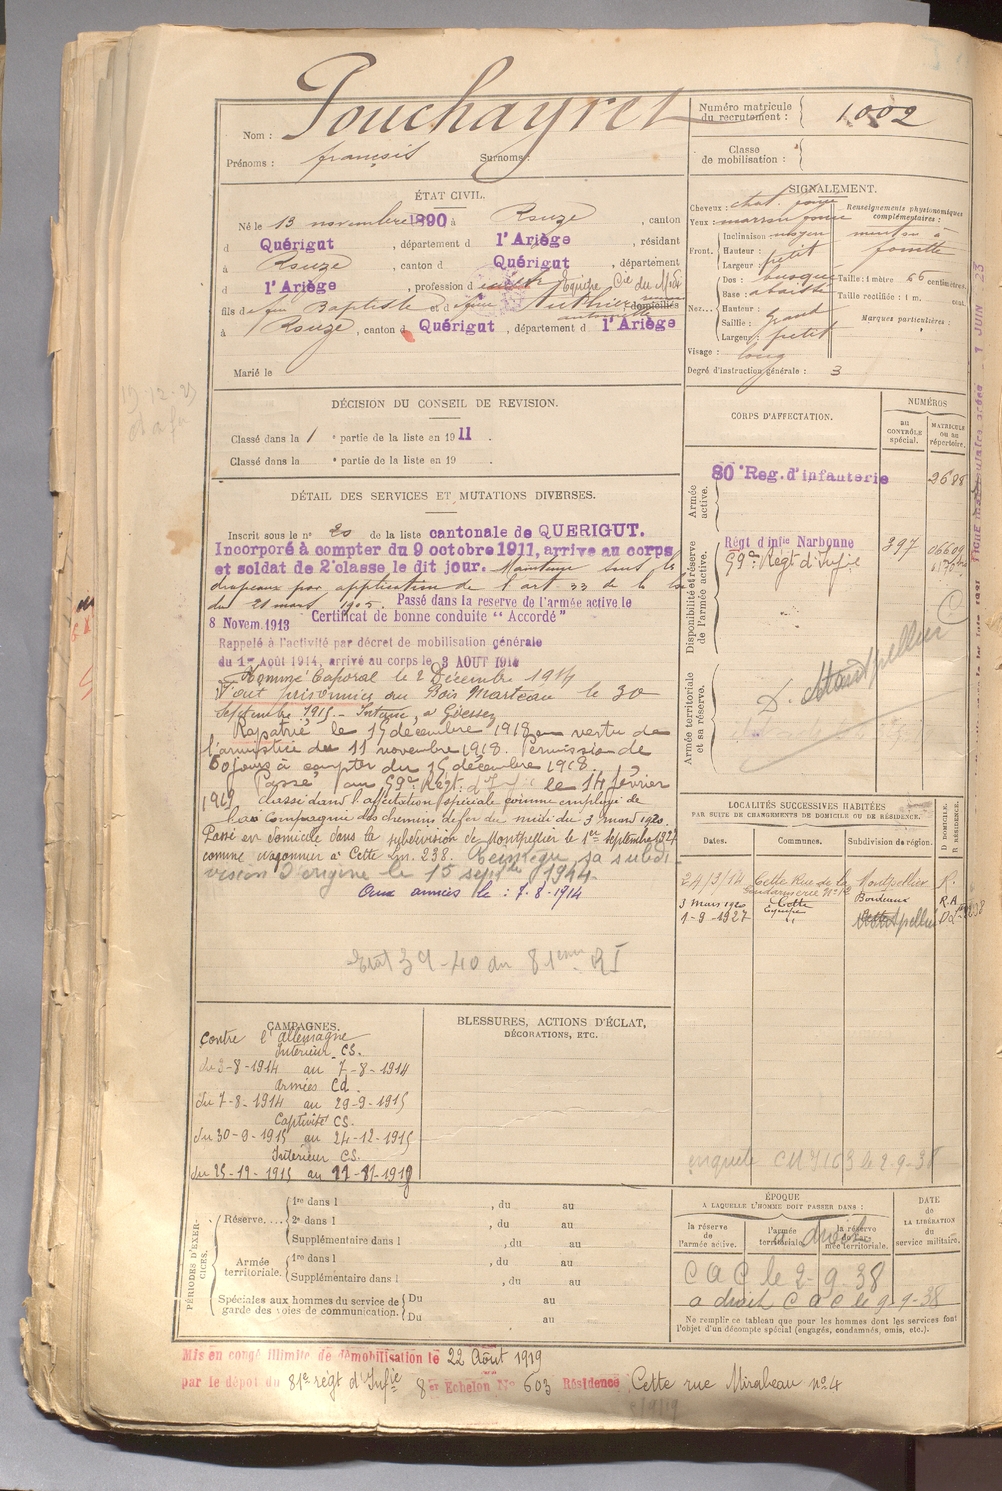 Nom : Pouchayret
Prénoms : françois Surnoms :
Numéro matricule du recrutement : 1002
Classe de mobilisation :
ÉTAT CIVIL.
Né le 13 novembre 1890 à Rouze, canton
d Quérigut, département d l'Ariège, résidant
à Rouze, canton d Quérigut, département
d l'Ariège, profession d Equipe Cie du Midi
fils de feu Baptiste et d feue Authier antoinette domiciliés
à Rouze, canton d Quérigut, département d l'Ariège
Marié le
SIGNALEMENT.
Cheveux : chat. foncé
Yeux : marron foncé
Front. Inclinaison moyen
Hauteur : petit
Largeur : petit
Nez... Dos : busqué
Base : abaissé
Hauteur :
Saillie : grand
Largeur : petit
Visage : long
Degré d'instruction générale : 3
Renseignements physionomiques complémentaires :
menton à fossette
Taille : 1 mètre 66 centimètres.
Taille rectifiée : 1 m. cent.
Marques particulières :
DÉCISION DU CONSEIL DE REVISION.
Classé dans la 1re partie de la liste en 1911.
Classé dans la e partie de la liste en 19 .
CORPS D'AFFECTATION.
NUMÉROS
au CONTRÔLE spécial.
MATRICULE ou au répertoire.
Armée active.
80e Reg. d'infanterie 2688
Disponibilité et réserve de l'armée active.
Régt d'infie Narbonne 397 06609
59e Régt d'Infie
Armée territoriale et sa réserve.
D. Montpellier
DÉTAIL DES SERVICES ET MUTATIONS DIVERSES.
Inscrit sous le n° 20 de la liste cantonale de QUERIGUT.
Incorporé à compter du 9 octobre 1911, arrivé au corps
et soldat de 2e classe le dit jour. Maintenu sous les
drapeaux par application de l'art 33 de la loi
du 21 mars 1905. Passé dans la reserve de l'armée active le
8 Novem. 1913 Certificat de bonne conduite "Accordé"
Rappelé à l'activité par décret de mobilisation générale
du 1er Août 1914, arrivé au corps le 3 AOUT 1914
Nommé Caporal le 2 Décembre 1914
Fait prisonnier au Bois Marteau le 30
septembre 1915 - Interné, à Giessen
Rapatrié le 15 décembre 1918 en vertu de
l'armistice du 11 novembre 1918. Permission de
60 jours à compter du 15 décembre 1918.
Passé au 59e Régt d'Infie le 14 février
1919 classé dans l'affectation spéciale comme employé de
la Compagnie des chemins de fer du midi du 3 mars 1920.
Passé en domicile dans la subdivision de Montpellier le 1er septembre 1927
comme wagonnier à Cette Sn. 238. Réintègre sa subdi
vision d'origine le 15 septbre 1944.
Aux armées le : 7-8-1914
Etat 39-40 du 81eme RI
LOCALITÉS SUCCESSIVES HABITÉES
PAR SUITE DE CHANGEMENTS DE DOMICILE OU DE RÉSIDENCE.
Dates. Communes. Subdivision de région. D DOMICILE. R RÉSIDENCE.
24/3/14 Cette Rue de la Gendarmerie n° 12 Montpellier R.
3 mars 1920 Cette Equipe Bordeaux R.A
1-9-1927 " Montpellier D
CAMPAGNES.
Contre l'allemagne
Intérieur CS.
du 3-8-1914 au 7-8-1914
armées Cd.
du 7-8-1914 au 29-9-1915
Captivité CS.
du 30-9-1915 au 24-12-1915
Intérieur CS.
du 25-12-1915 au
BLESSURES, ACTIONS D'ÉCLAT,
DÉCORATIONS, ETC.
enquete le 2-9-38
PÉRIODES D'EXERCICES.
Réserve.... 1re dans l , du au
2e dans l , du au
Supplémentaire dans l , du au
Armée territoriale. 1re dans l , du au
Supplémentaire dans l , du au
Spéciales aux hommes du service de garde des voies de communication. Du au
Du au
ÉPOQUE
A LAQUELLE L'HOMME DOIT PASSER DANS :
la réserve de l'armée active.
l'armée territoriale.
la réserve de l'armée territoriale.
DATE DE LA LIBÉRATION du service militaire.
a droit
CAC le 2-9-38
a droit CAC le 9-9-38
Ne remplir ce tableau que pour les hommes dont les services font
l'objet d'un décompte spécial (engagés, condamnés, omis, etc.).
Mis en congé illimité de démobilisation le 22 Août 1919
par le dépôt du 81e régt d'Infie 8er Echelon N° 603 Résidence Cette rue Mirabeau n° 4